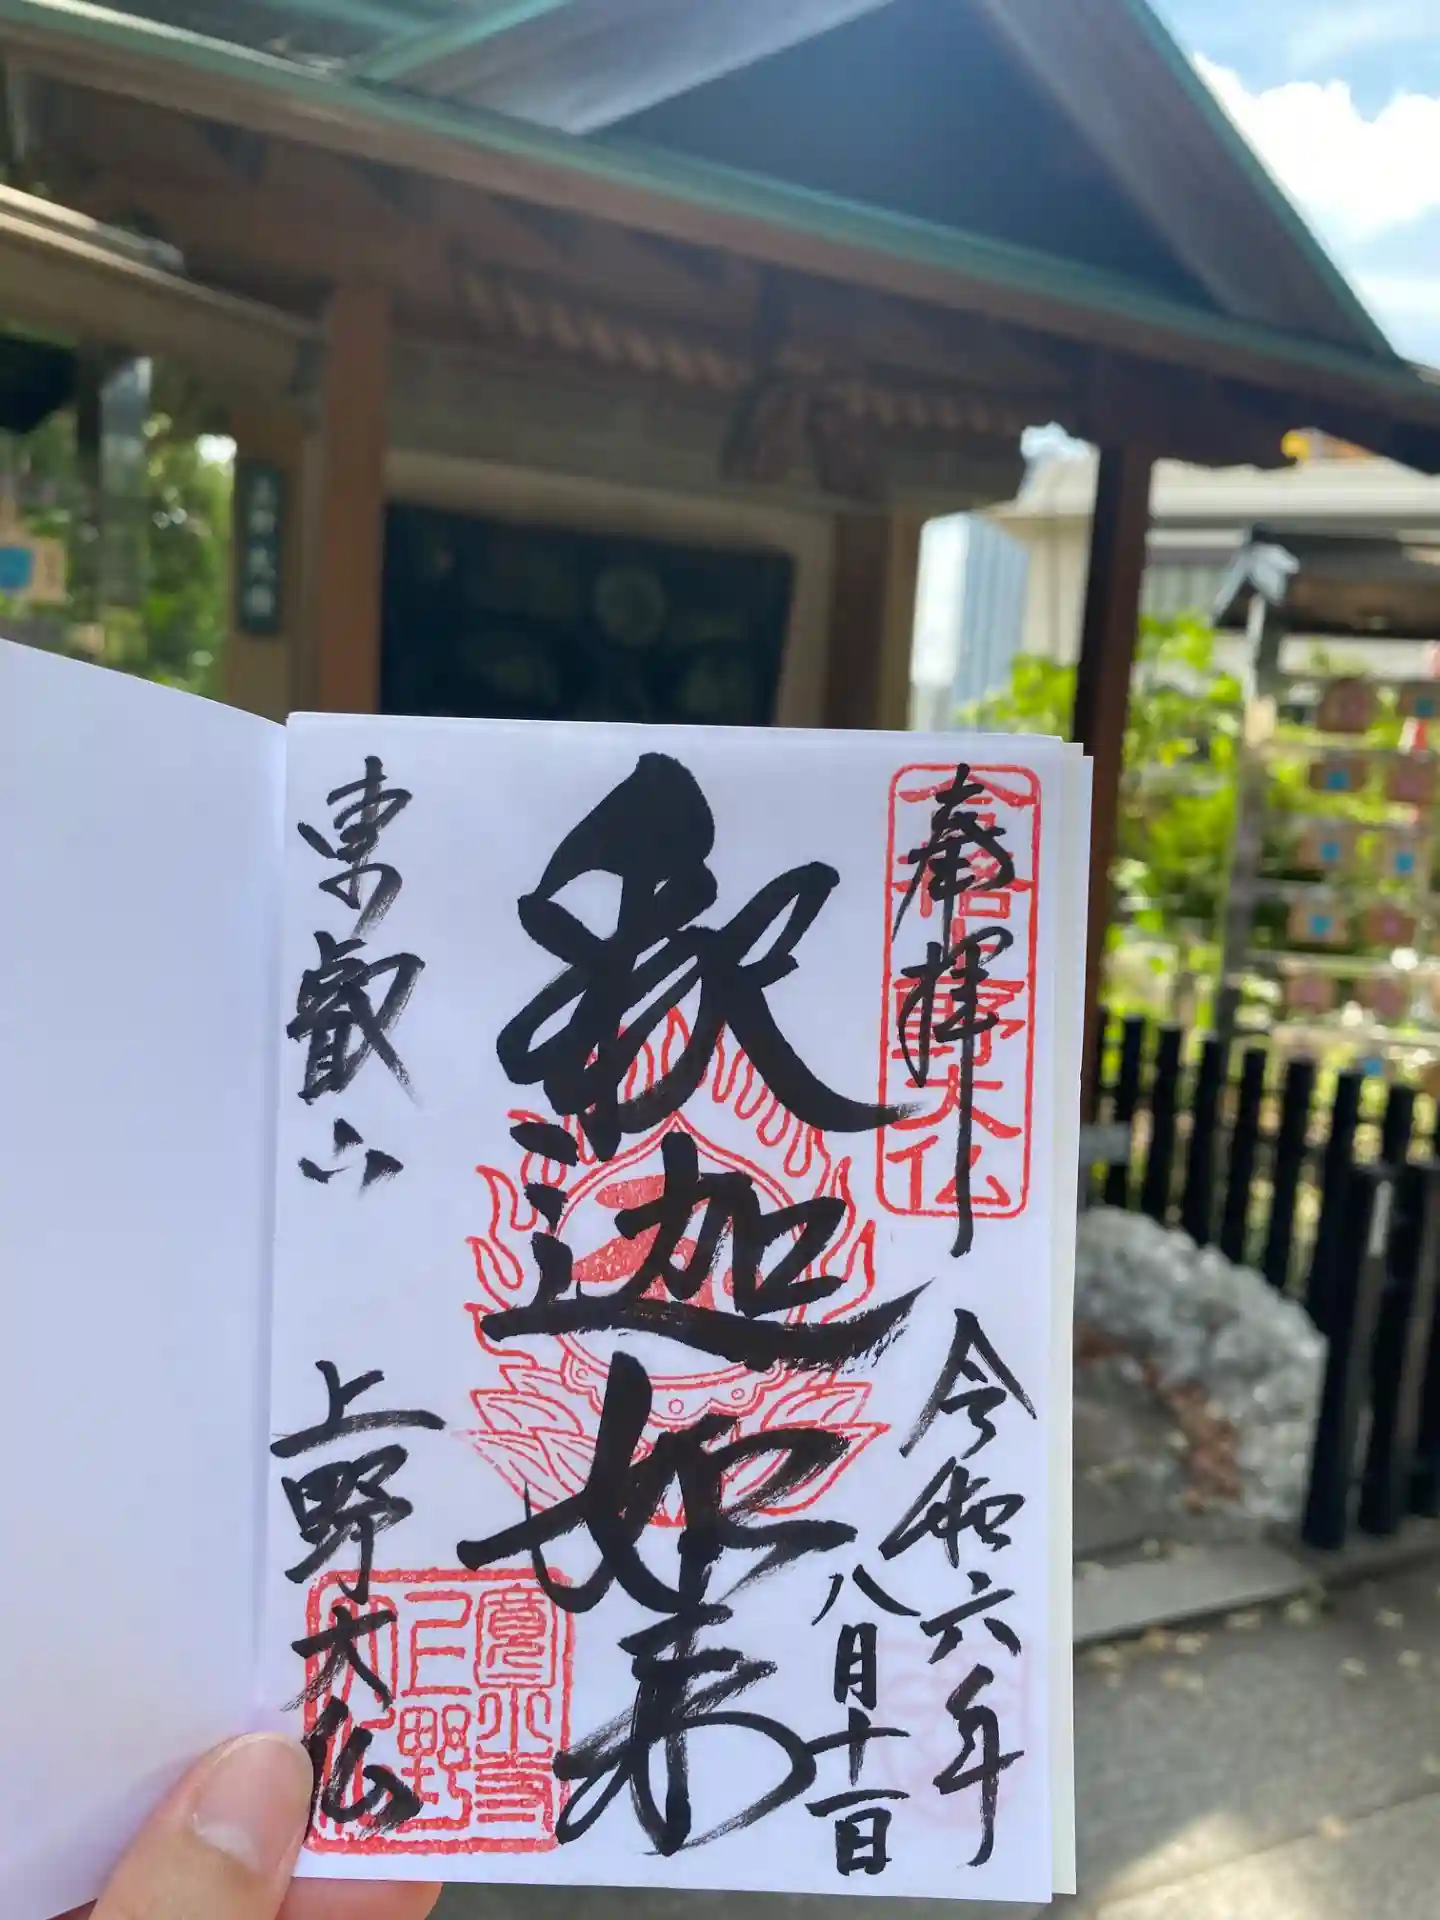 奉拝
令和六年
八月十一日
釈迦如来
東叡山
上野大仏
合格
上野大仏
寛永寺
上野
大仏